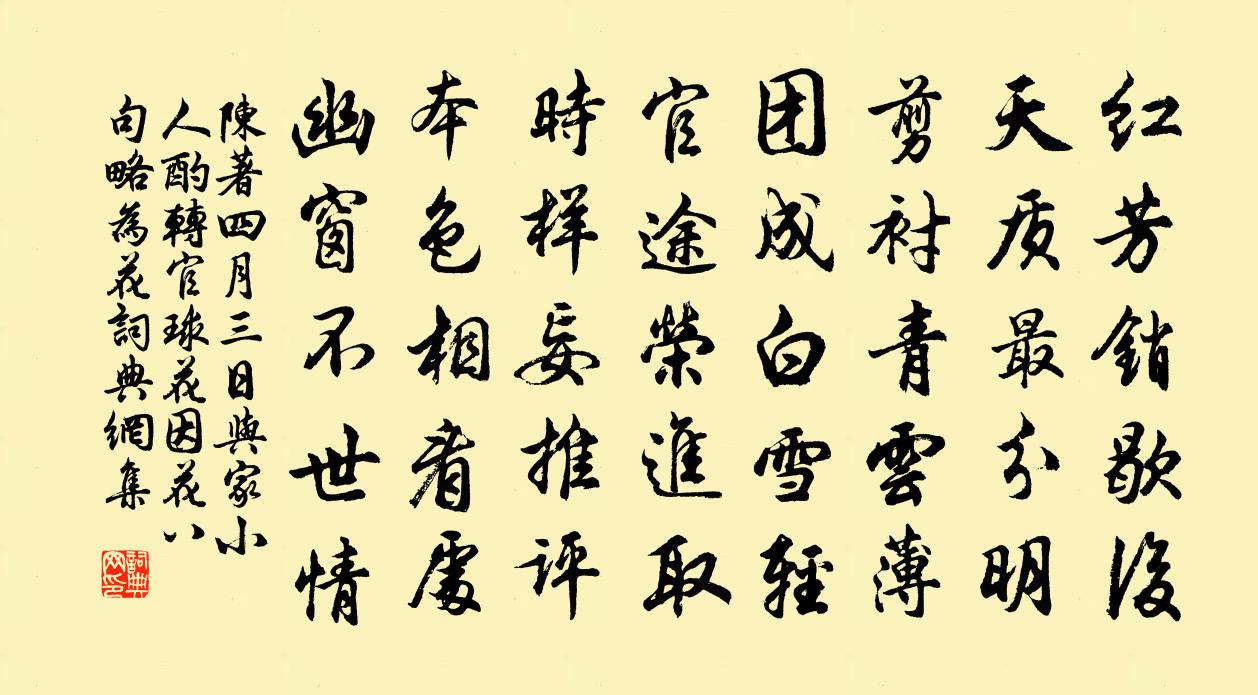 红芳銷歇後
天质最分明
剪衬青雲薄
团成白雪輕
官途榮進取
時样妄推评
本色相看處
幽窗不世情
陳著四月三日與家小
人酌轉官球花因花八
句略為花詞典網集
詞典网印